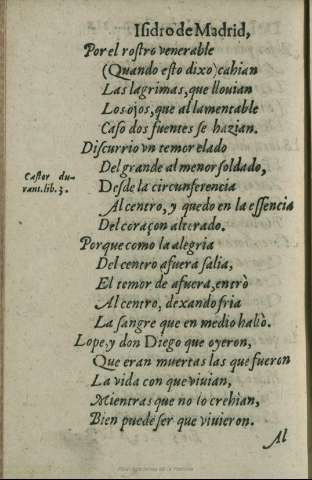 Isidro de Madrid,
Por el rostro venerable
(Quando esto dixo) cahian
Las lagrimas, que llouian
Los ojos, que al lamentable
Caso dos fuentes se hazian.
Discurrio vn temor elado
Del grande al menor soldado,
Castor du-
rant. lib. 3.
Desde la circunferencia
Al centro, y quedo en la essencia
Del coraçon alterado.
Porque como la alegria
Del centro afuera salia,
El temor de afuera, entrò
Al centro, dexando fria
La sangre que en medio hallò.
Lope, y don Diego que oyeron,
Que eran muertas las que fueron
La vida con que viuian,
Mientras que no lo crehian,
Bien puede ser que viuieron.
Al